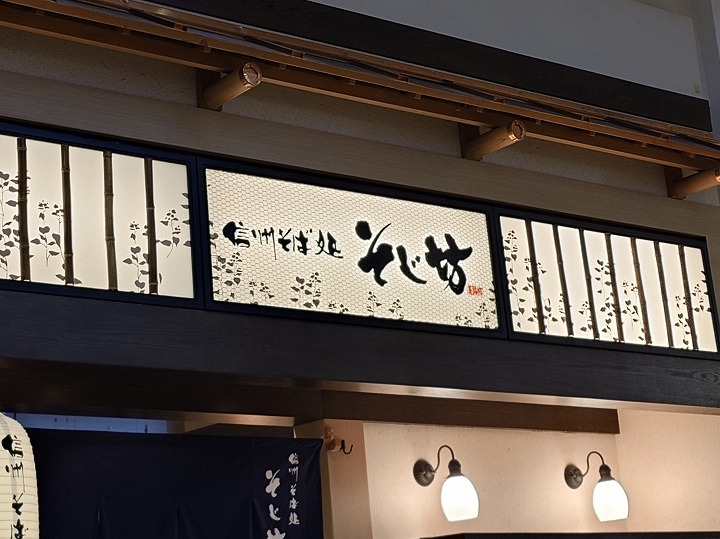 信州そば処 そじ坊
信州そば処
そじ坊
信州そば